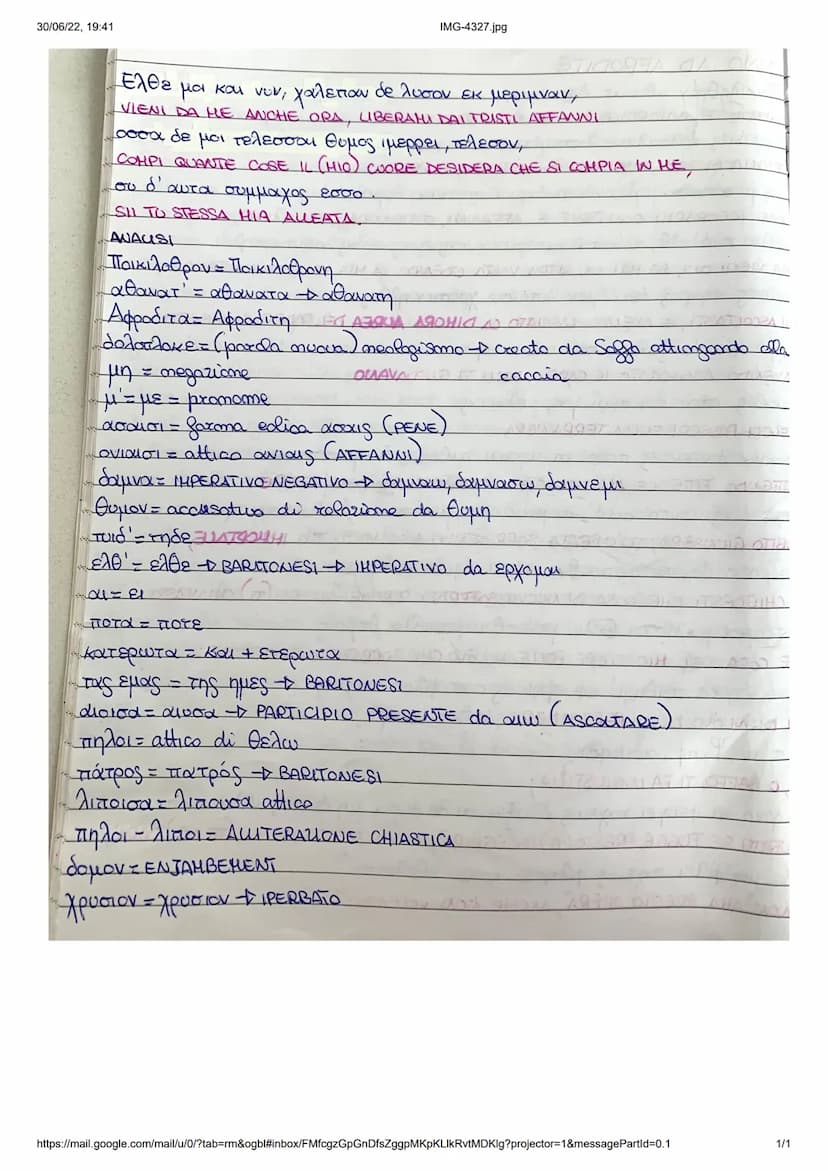 30/06/22, 19:41 IMG-4327.jpg
Ελθε μοι και νυν, χαλεπαν δε λυσον εκ μεριμναν,
VIENI DA ME ANCHE ORA, LIBERAMI DAI TRISTI AFFANNI
οσσα δε μοι τελεσσαι θυμος ιμερρει, τελεσον,
COMPI QUANTE COSE IL (MIO) CUORE DESIDERA CHE SI COMPIA IN ME,
συ δ'αυτα συμμαχος εσσο.
SII TU STESSA MIA ALLEATA.
ANALISI
Ποικιλοθρον = Ποικιλοθρονη
αθανατ' = αθανατα → αθανατη
Αφροδιτα = Αφροδιτη
δολοπλοκε = (parola nuova) neologismo → creato da Saffo attingendo alla
μη = negazione caccia
μ' = με = pronome
ασαισι = forma eolica ασαις (PENE)
ονιαισι = attico ανιαις (AFFANNI)
δαμνα = IMPERATIVO NEGATIVO → δαμναω, δαμνασω, δαμνεμι
θυμον = accusativo di relazione da θυμη
τυιδ' = τηδε
ελθ' = ελθε → BARITONESI → IMPERATIVO da ερχομαι
αι = ει
ποτα = ποτε
κατερωτα = και + ετερωτα
τας εμας = της ημες → BARITONESI
αιοισα = αιυσα → PARTICIPIO PRESENTE da αιω (ASCOLTARE)
πηλοι = attico di θελω
πάτρος = πατρός → BARITONESI
λιποισα = λιπουσα attico
πηλοι - λιποι = ALLITERAZIONE CHIASTICA
δομον = ENJAMBEMENT
χρυσιον = χρυσιον → IPERBATO
https://mail.google.com/mail/u/0/?tab=rm&ogbl#inbox/FMfcgzGpGnDfsZggpMKpKLlkRvtMDKlg?projector=1&messagePartId=0.1 1/1